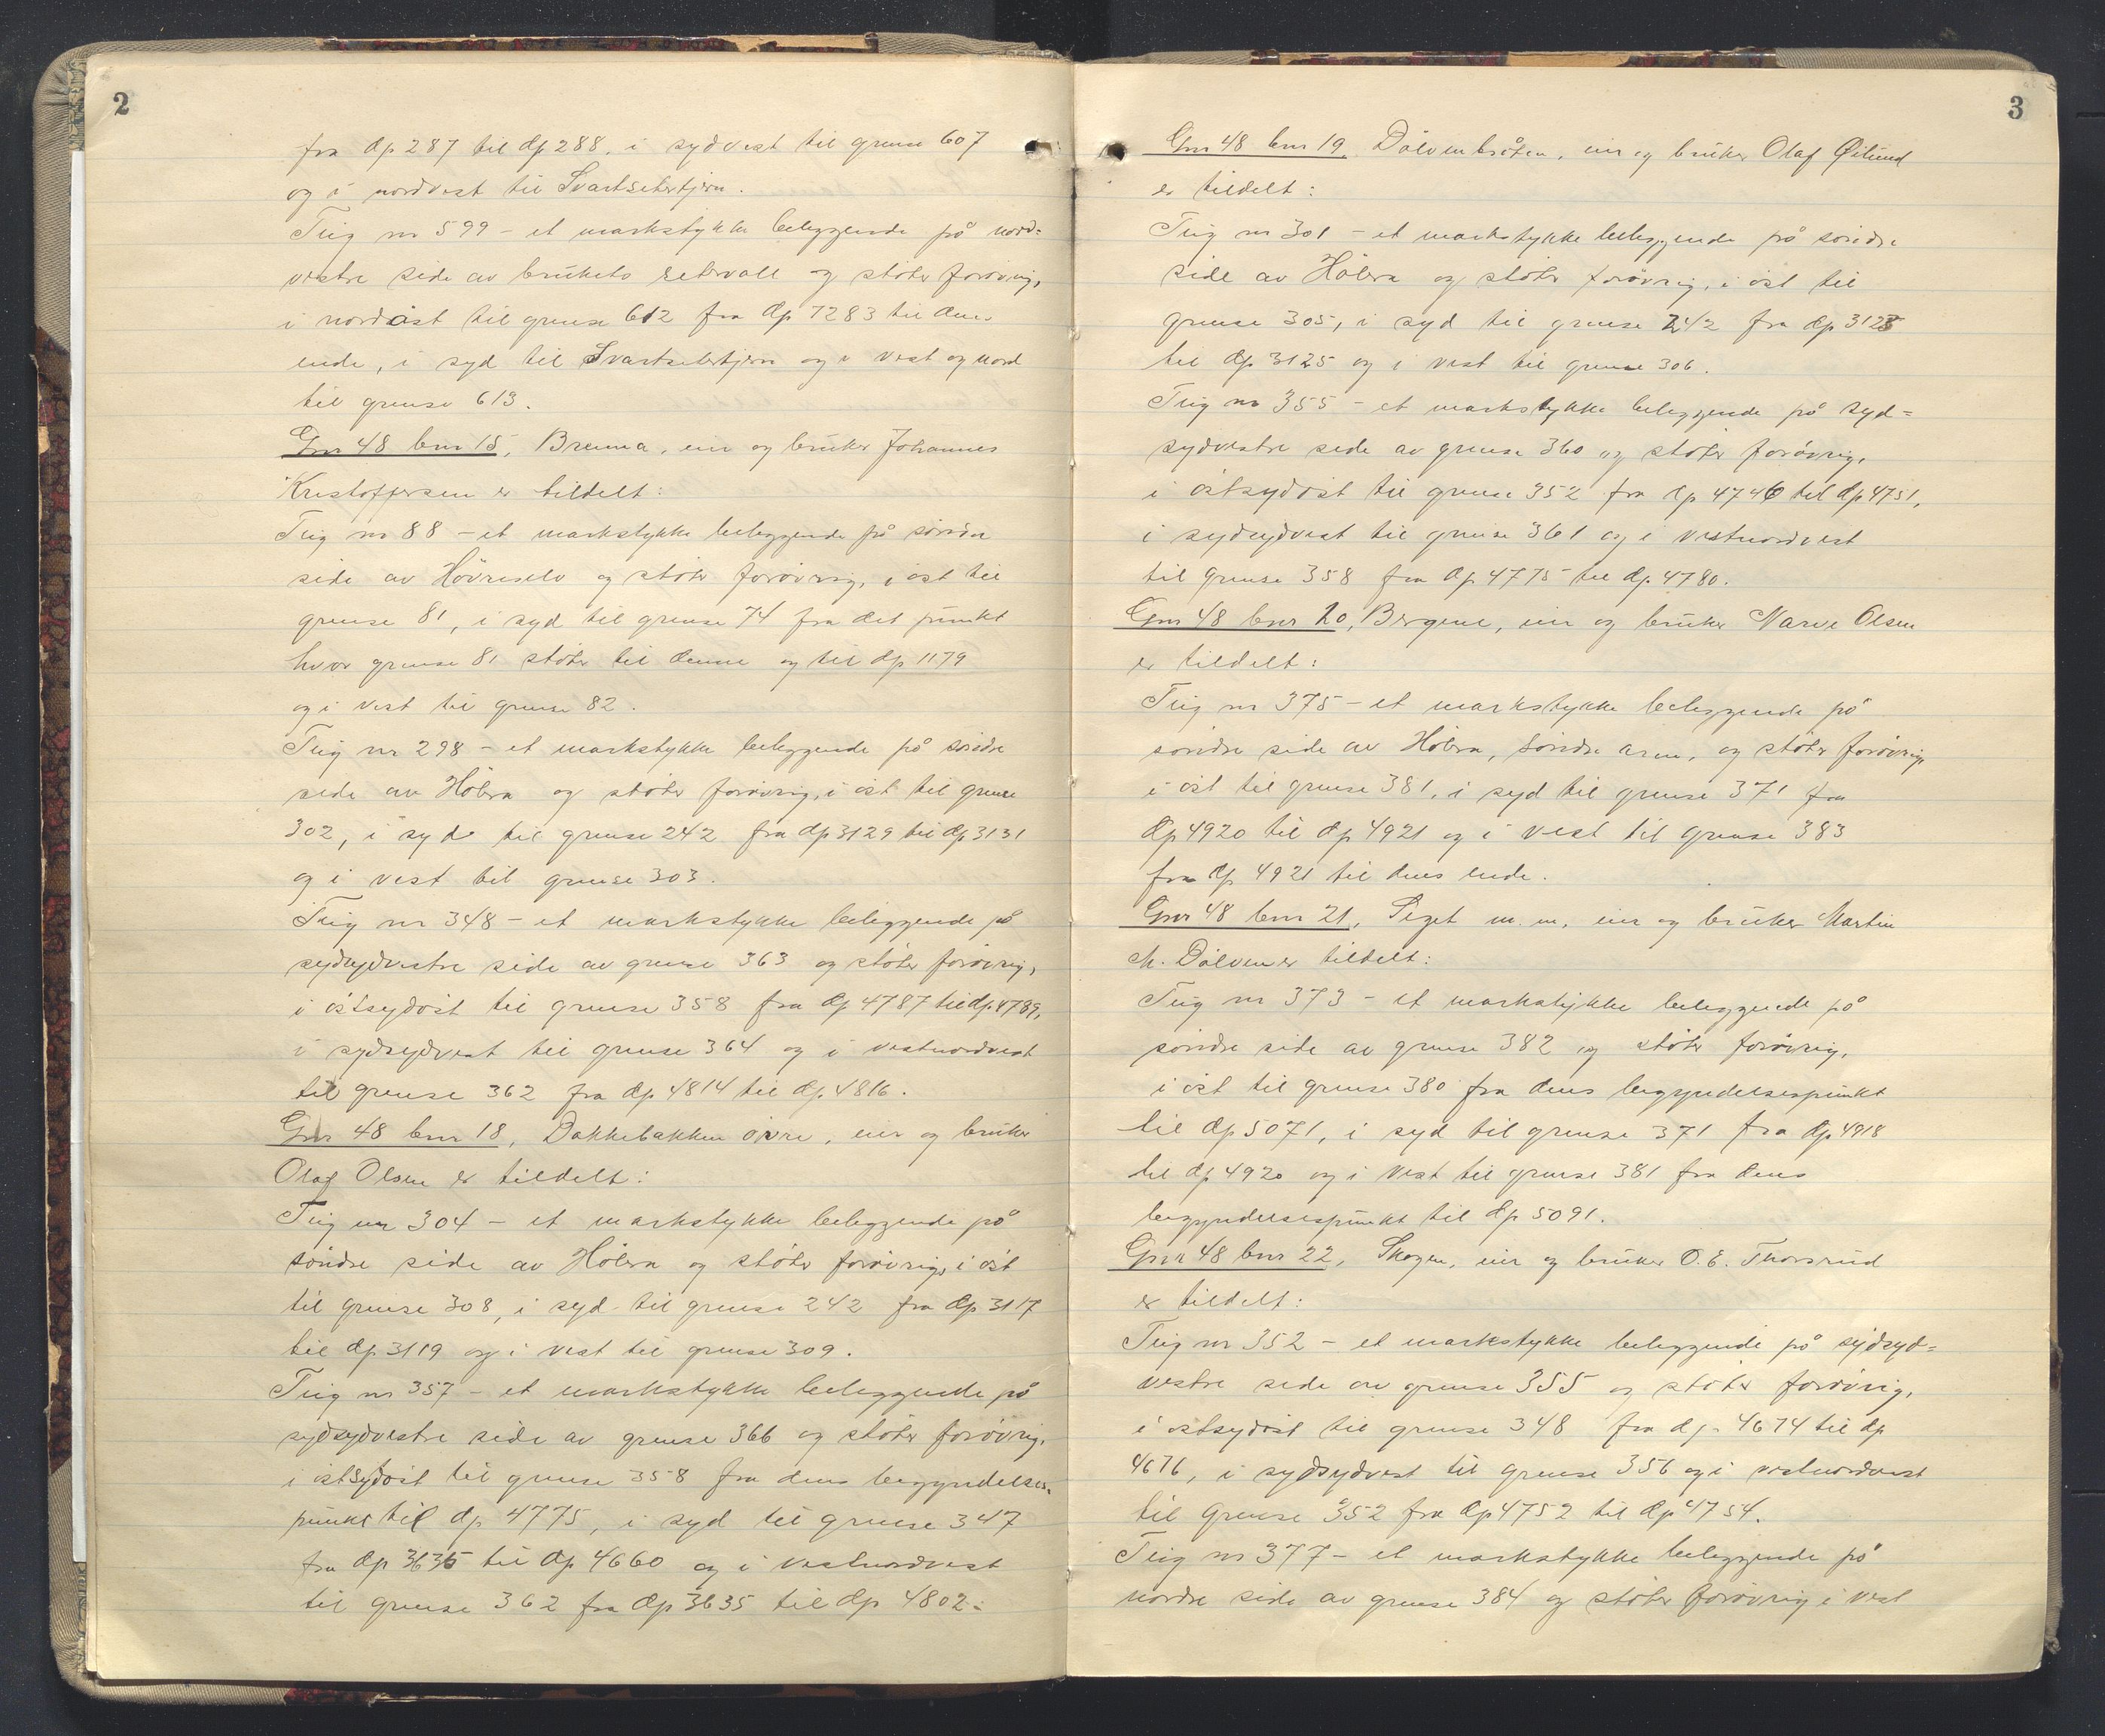 2
fra dp 287 til dp 288, i sydvest til grense 607
og i nordvest til Svartsetertjern.
Teig nr 599 – et markstykke beliggende på nord=
vestre side av brukets setervoll og støter forøvrig,
i nordøst til grense 612 fra dp 7283 til dens
ende, i syd til Svartsetertjern og i vest og nord
til grense 613.
Gnr 48 bnr 15, Brenna, eier og bruker Johannes
Kristoffersen er tildelt:
Teig nr 88 – et markstykke beliggende på søndre
side av Høvreselv og støter forøvrig, i øst til
grense 81, i syd til grense 74 fra det punkt
hvor grense 81 støter til denne og til dp 1179
og i vest til grense 82.
Teig nr 298 – et markstykke beliggende på søndre
side av Hølera og støter forøvrig, i øst til grense
302, i syd til grense 242 fra dp 3129 til dp 3131
og i vest til grense 303.
Teig nr 348 – et markstykke beliggende på
sydsydvestre side av grense 363 og støter forøvrig,
i østsydøst til grense 358 fra dp 4787 til dp. 4789,
i sydsydvest til grense 364 og i vestnordvest
til grense 362 fra dp 4814 til dp. 4816.
Gnr 48 bnr 18, Bakkebakken øvre, eier og bruker
Olaf Olsen er tildelt:
Teig nr 304 – et markstykke beliggende på
søndre side av Hølera og støter forøvrig, i øst
til grense 308, i syd til grense 242 fra dp 3117
til dp 3119 og i vest til grense 309.
Teig nr 357 – et markstykke beliggende på
sydsydvestre side av grense 366 og støter forøvrig,
i østsydøst til grense 358 fra dens begyndelses-
punkt til dp 4775, i syd til grense 347
fra dp 3635 til dp 4660 og i vestnordvest
til grense 362 fra dp 3635 til dp 4802.
3
Gnr 48 bnr 19, Dølvenbråten, eier og bruker Olaf Øilund
er tildelt:
Teig nr 301 – et markstykke beliggende på søndre
side av Hølera og støter forøvrig, i øst til
grense 305, i syd til grense 242 fra dp 3123
til dp 3125 og i vest til grense 306.
Teig nr 355 – et markstykke beliggende på syd=
sydvestre side av grense 360 og støter forøvrig,
i østsydøst til grense 352 fra dp 4746 til dp 4751,
i sydsydvest til grense 361 og i vestnordvest
til grense 358 fra dp 4775 til dp. 4780.
Gnr 48 bnr 20, Bergene, eier og bruker Narve Olsen
er tildelt:
Teig nr 375 – et markstykke beliggende på
søndre side av Hølera, søndre arm, og støter forøvrig,
i øst til grense 381, i syd til grense 371 fra
dp 4920 til dp 4921 og i vest til grense 383
fra dp 4921 til dens ende.
Gnr 48 bnr 21, m.m, eier og bruker Martin
M. Dølven er tildelt:
Teig nr 373 – et markstykke beliggende på
søndre side av grense 382 og støter forøvrig,
i øst til grense 380 fra dens begyndelsespunkt
til dp 5071, i syd til grense 371 fra dp 4918
til dp 4920 og i vest til grense 381 fra dens
begyndelsespunkt til dp 5091.
Gnr 48 bnr 22, Skogen, eier og bruker O. E. Thorsrud
er tildelt:
Teig nr 352 – et markstykke beliggende på sydsyd=
vestre side av grense 355 og støter forøvrig,
i østsydøst til grense 348 fra dp. 4674 til dp
4676, i sydsydvest til grense 356 og i vestnordvest
til grense 352 fra dp 4752 til dp 4754.
Teig nr 377 – et markstykke beliggende på
nordre side av grense 384 og støter forøvrig i vest